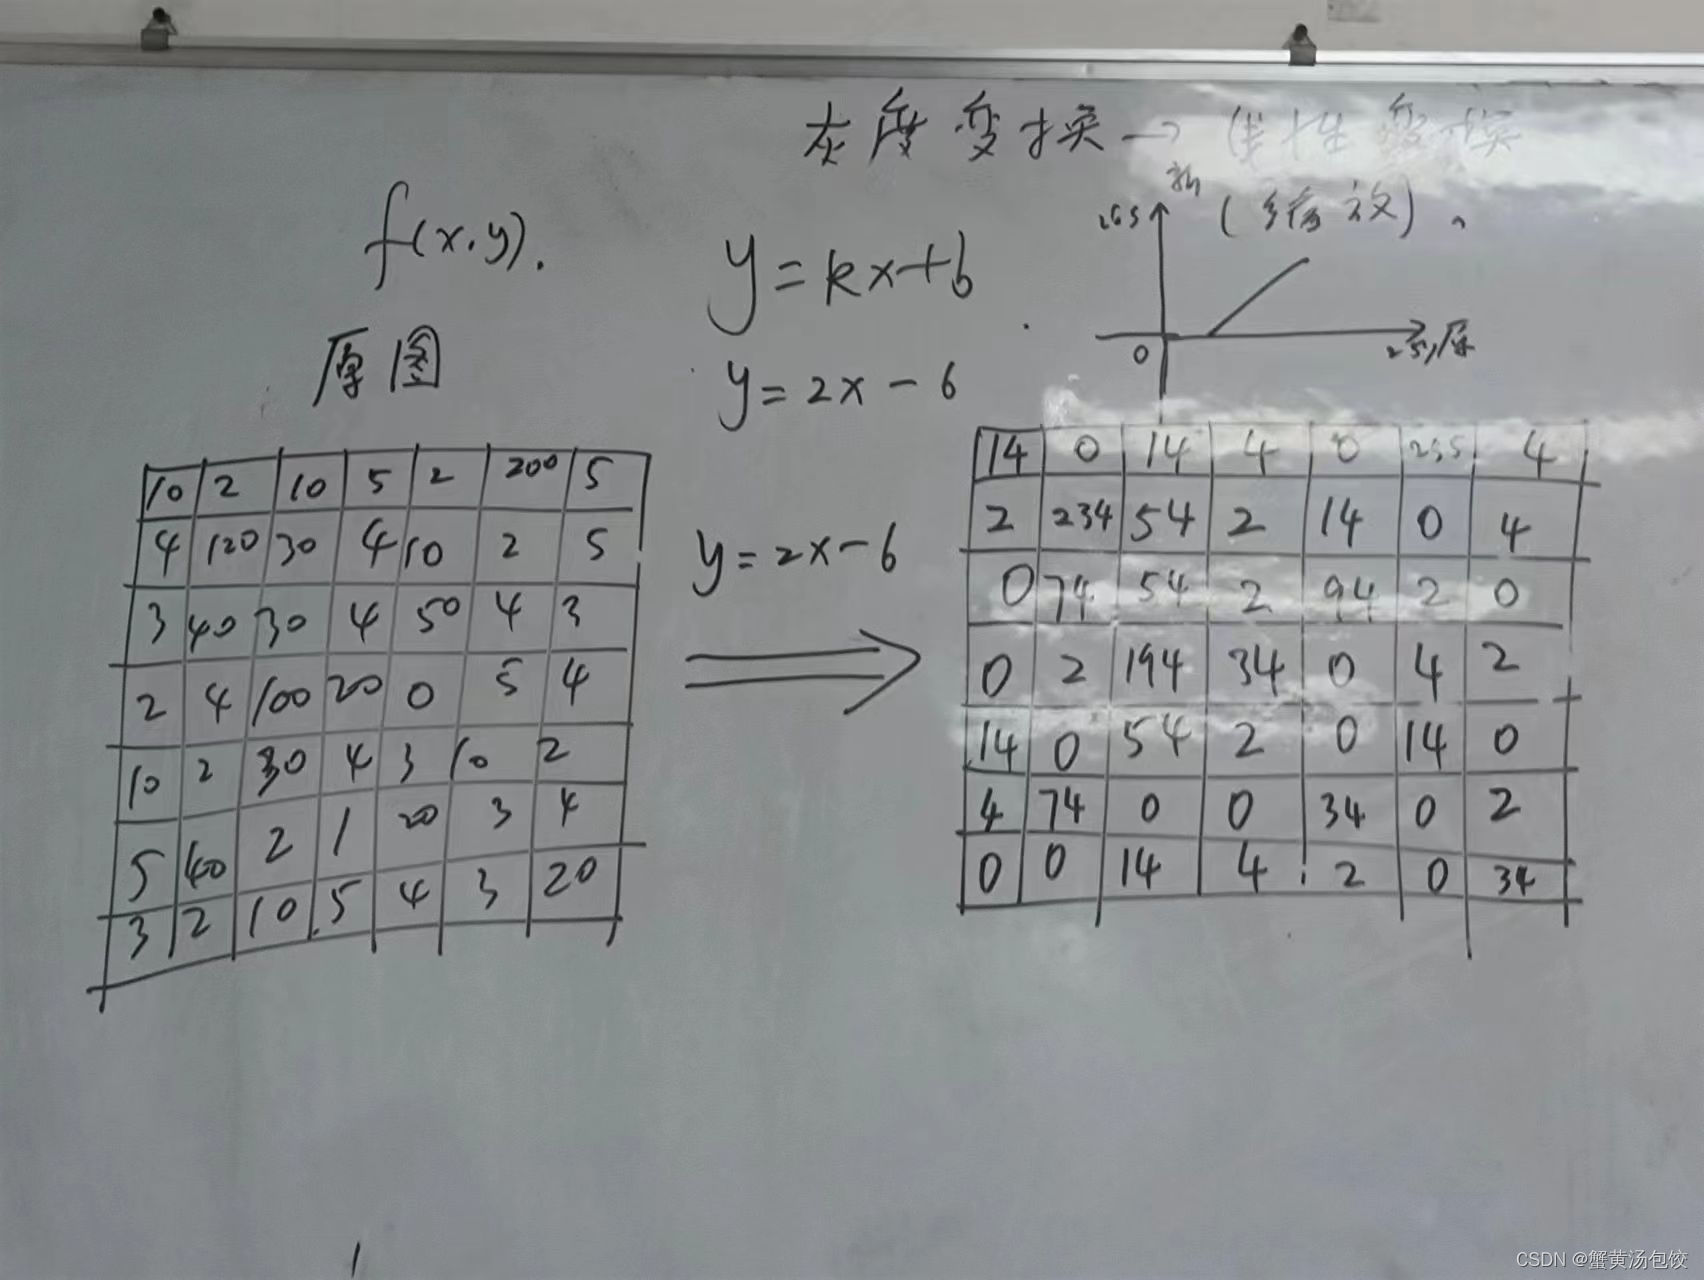 灰度变换→线性变换
(缩放)、
f(x.y).
y=kx+b
新
255
0
255原
原图
y=2x-6
10 2 10 5 2 200 5
4 120 30 4 10 2 5
3 40 30 4 50 4 3
2 4 100 20 0 5 4
10 2 30 4 3 10 2
5 40 2 1 20 3 4
3 2 10 5 4 3 20
y=2x-6
14 0 14 4 0 255 4
2 234 54 2 14 0 4
0 74 54 2 94 2 0
0 2 194 34 0 4 2
14 0 54 2 0 14 0
4 74 0 0 34 0 2
0 0 14 4 2 0 34
CSDN @蟹黄汤包饺